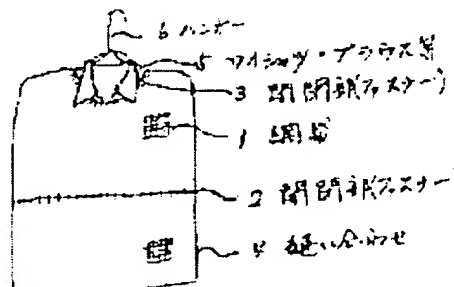 6 ハンガー
5 ワイシャツ・ブラウス等
3 開閉部(ファスナー)
1 網
2 開閉部(ファスナー)
4 縫い合わせ